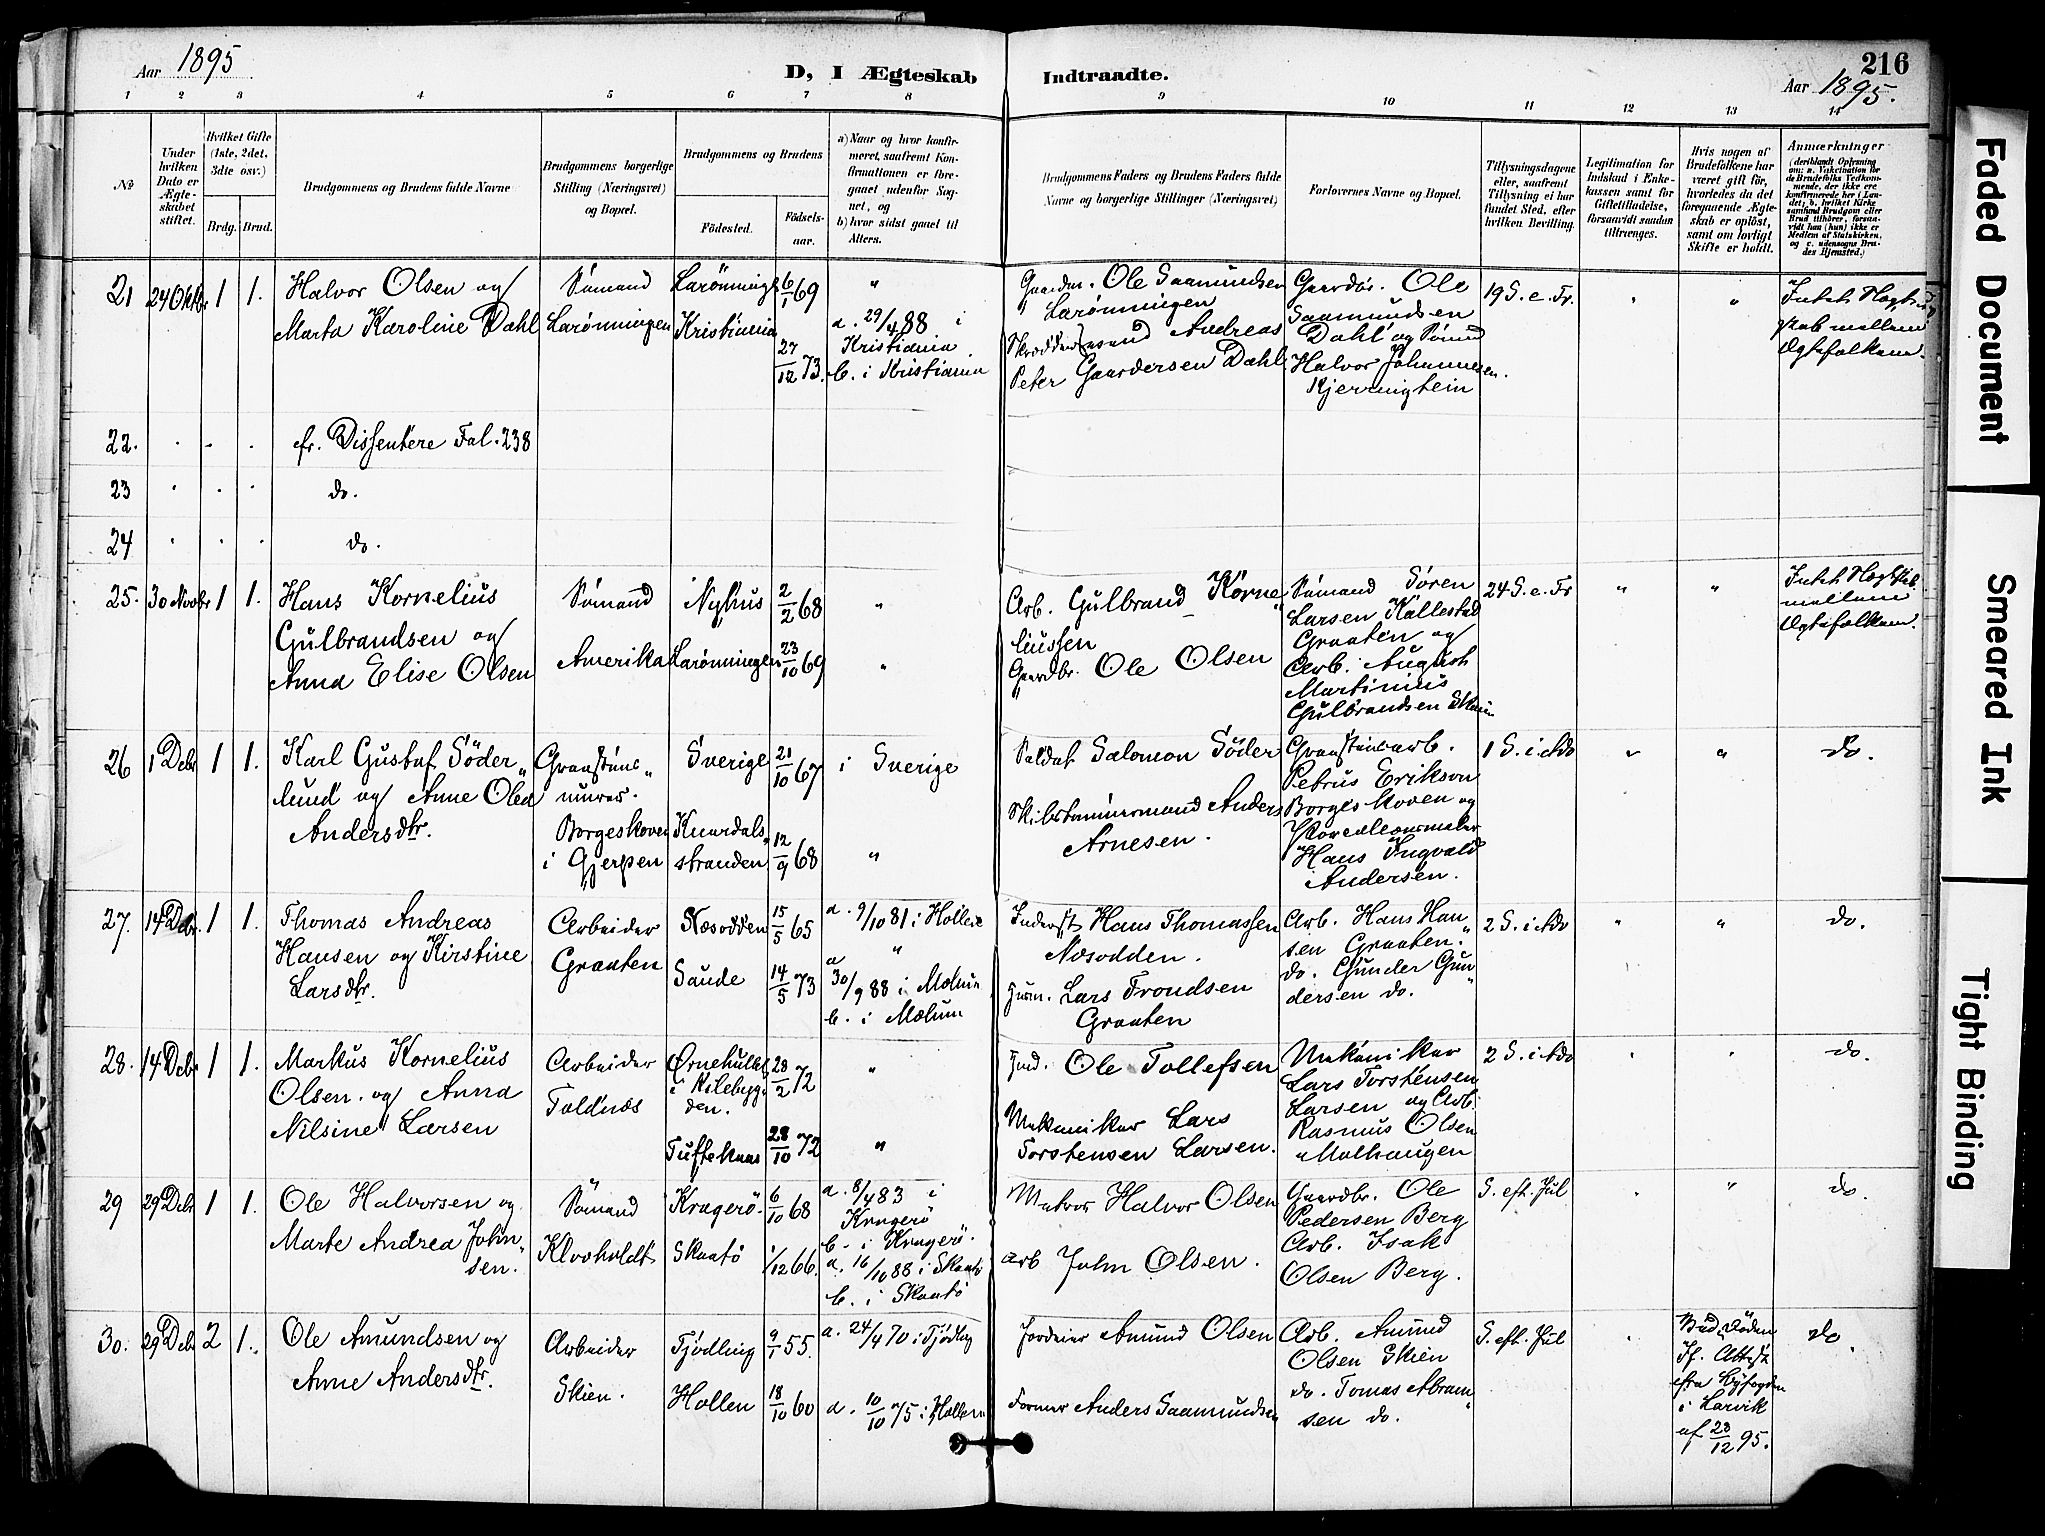 Aar 1895
D, I Ægteskab Indtraadte.
216
Aar 1895.
1 2 3 4 5 6 7 8 9 10 11 12 13 14
No
Under hvilken Dato er Ægteskabet stiftet.
Hvilket Gifte (1ste, 2det, 3die osv.)
Brdg. Brud.
Brudgommens og Brudens fulde Navne
Brudgommens borgerlige Stilling (Næringsvei) og Bopæl.
Brudgommens og Brudens
Fødested.
Fødsels-aar.
a) Naar og hvor konfirmeret, saafremt Konfirmationen er foregaaet udenfor Sognet, og
b) hvor sidst gaaet til Alters.
Brudgommens Faders og Brudens Faders fulde Navne og borgerlige Stillinger (Næringsvei)
Forlovernes Navne og Bopæl.
Tillysningsdagene eller, saafremt Tillysning ei har fundet Sted, efter hvilken Bevilling.
Legitimation for Indskud i Enkekassen samt for Giftetilladelse, forsaavidt saadan tiltrænges.
Hvis nogen af Brudefolkene har været gift før, hvorledes da det foregaaende Ægteskab er opløst, samt om lovligt Skifte er holdt.
Anmærkninger
(deriblandt Oplysning om: a. Vakcination for de Brudefolks Vedkommende, der ikke ere konfirmerede her i Landet; b. hvilket Kirkesamfund Brudgom eller Brud tilhører, forsaavidt han (hun) ikke er Medlem af Statskirken, og c. udensogns Brudes Hjemsted.)
21 24 Oktbr 1 1. Halvor Olsen og
Marta Karoline Dahl
Sømand
Larønningen
Larønningen 6/1 69 "
Kristiania 27/12 73.
a. 29/4 88 i
Kristiania.
b. i Kristiania
Gaardm. Ole Saamundsen
Larønningen
Andreas
Peter Gaardersen Dahl
Gaardbr. Ole
Saamundsen
Dahl og Sømd
Halvor Johannesen.
19 S. e. Tr.
" "
Intet Slægtskab mellem
Ægtefolkene.
22. . . . cfr. Dissentere Fol. 238
23 . . . do.
24 . . . do.
25. 30 Novbr 1 1. Hans Kornelius
Gulbrandsen og
Anna Elise Olsen
Sømand
Amerika
Nyhus 2/2 68 "
Larønningen 23/10 69 "
Arb. Gulbrand Korne„
liussen
Gaardbr. Ole Olsen
Sømand Søren
Larsen Kallestad
Graaten og
Arb. August
Martinius
Gulbrandsen Skien
24 S. e. Tr
" "
Intet Slægtskab
mellem
Ægtefolkene.
26 1 Debr 1 1. Karl Gustaf Söder„
lund og Anne Olea
Andersdtr.
Graastens„
murer.
Borgeskoven
i Gjerpen
Sverige 21/10 67 i Sverige
Knardals„
stranden 12/9 68 "
Soldat Salomon Söder
Skibstømmermand Anders
Arnesen.
Graastensarb.
Petrus Erikson
Borgeskoven og
Hans Ingvald
Andersen.
1 S. i Adv
" "
do.
27. 14 Debr. 1 1. Thomas Andreas
Hansen og Kirstine
Larsdtr.
Arbeider
Graaten
Næsodden 15/5 65 a. 9/10 81 i Hollen
"
Saude 14/5 73 a 30/9 88 i Mælum
b. i Mælum
Inderst Hans Thomassen
Næsodden.
Husm. Lars Trondsen
Graaten
Arb. Hans Han„
sen Graaten.
do. Gunder Gun„
dersen do.
2 S. i Adv
" "
do.
28. 14 Debr 1 1. Markus Kornelius
Olsen. og Anna
Nilsine Larsen
Arbeider
Toldnæs
Ørnehullet
i Kilebyg„
den. 28/2 72 "
Tuftekaas 28/10 72 "
Ind. Ole Tollefsen
Mekaniker Lars
Torstensen Larsen.
Mekaniker
Lars Torstensen
Larsen og Arb.
Rasmus Olsen
Molhaugen
2 S. i Adv
" "
do.
29 29 Debr 1 1. Ole Halvorsen og
Marte Andrea John„
sen.
Sømand
Klovholdt
Kragerø. 6/10 68
Skaatø 1/12 66.
a. 8/4 83 i
Kragerø
b. i Kragerø.
a. 16/10 88 i Skaatø
b. i Skaatø
Matros Halvor Olsen
Arb John Olsen.
Gaardbr. Ole
Pedersen Berg
Arb. Isak
Olsen Berg.
S. eft. Jul
" "
do.
30. 29 Debr 2 1. Ole Amundsen og
Anne Andersdtr.
Arbeider
Skien.
Tjødling 9/1 55. a. 24/4 70 i Tjødling
Hollen 18/10 60 a. 10/10 75 i Hollen
Jordeier Amund Olsen
Former Anders Saamundsen
Arb. Amund
Olsen Skien
do. Tomas Abram„
sen do.
S. eft. Jul
"
Ved Døden
If. Attest
fra Byfogden
i Larvik
af 28/12 95.
do.
Faded Document
Smeared Ink
Tight Binding